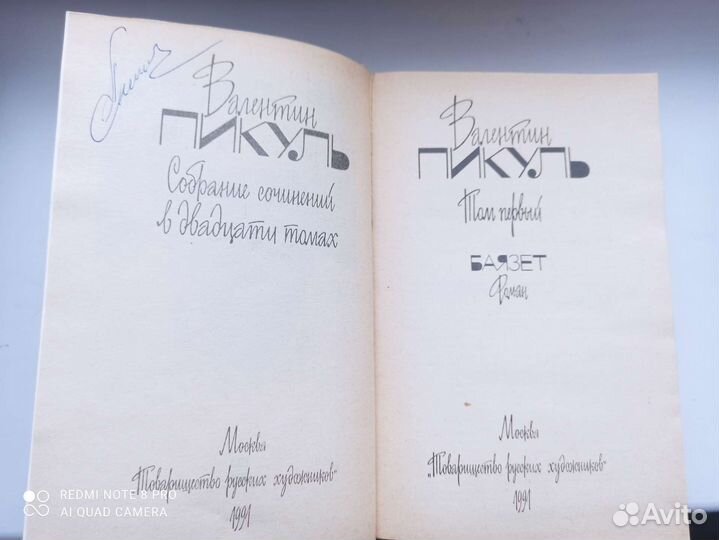 Валентин
ПИКУЛЬ
Собрание сочинений
в двадцати томах
Москва
"Товарищество русских художников"
1991
Валентин
ПИКУЛЬ
Том первый
БАЯЗЕТ
Роман
Москва
"Товарищество русских художников"
1991
REDMI NOTE 8 PRO
AI QUAD CAMERA
Avito